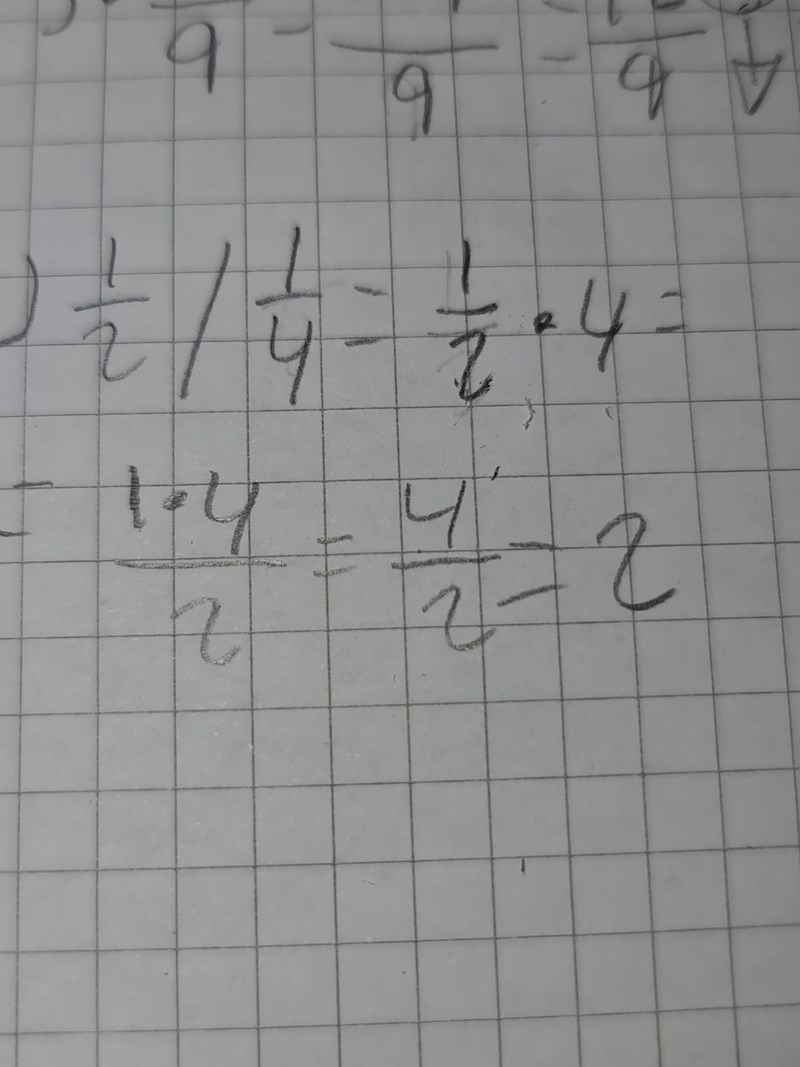 ) 1/2 / 1/4 = 1/2 · 4 =
= 1·4/2 = 4/2 = 2